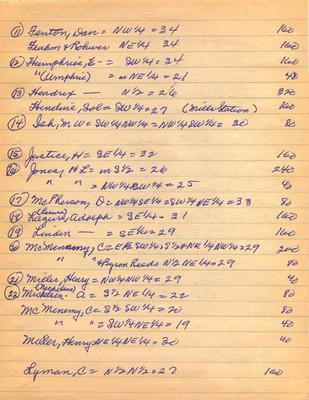 (11) Fenton, Dan = NW¼ = 34 160
Frahm & Rohwer NE¼ 34 160
(12) Humphries, E - = SW¼ = 34 160
" (Umphrie) = in NE¼ = 21 40
(13) Hendrix — N½ = 26 320
Hendrix, Sol = SW¼ = 27 (Mills Station) 160
(14) Ish, M W = SW¼NW¼ = NW¼SW¼ = 30 80
(15) Justice, H = SE¼ = 32 160
(16) Jones, H L = in S½ = 26 240
" " = NW¼ SW¼ = 25 40
(17) McPherson, O = NW¼SE¼ = SW¼NE¼ = 33 80
(18) Adolph = SE¼ = 31 160
(19) = SE¼ = 29 160
McMenemy, C = E½SW¼ = S½ NE¼ NW¼ = 29 200
" & Byron Reed = N½ NE¼ = 29 80
(21) Miller, Henry = NW¼NW¼ = 29 40
(22) A = S½ NE¼ = 22 80
McMenemy, C = S½ SW¼ = 20 80
" " = SW¼NE¼ = 19 40
Miller, Henry = NE¼ = 30 40
Lyman, C = N½N½ = 27 160